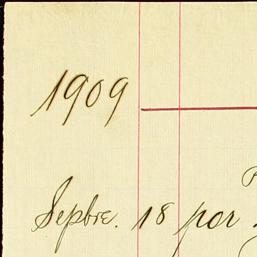 1909
Sepbre. 18 por